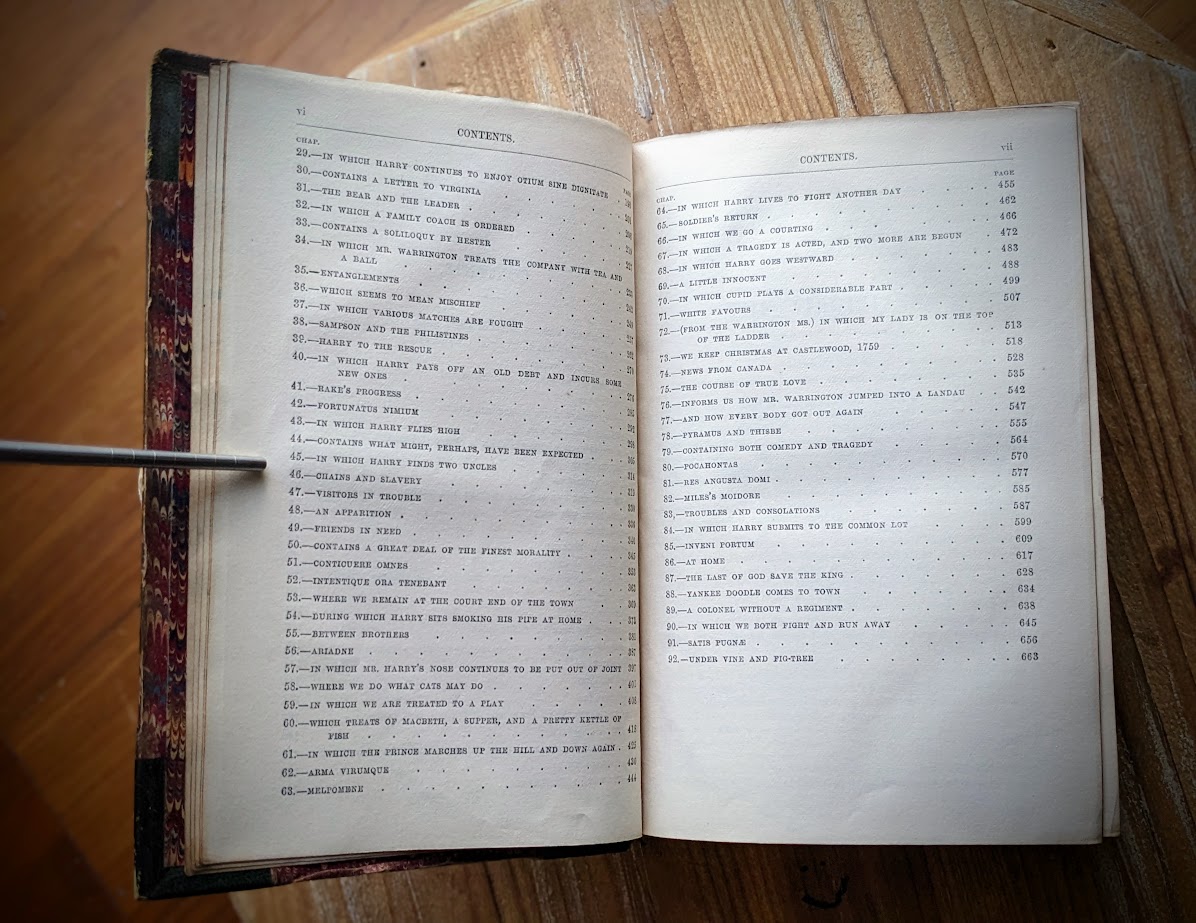 vi
CONTENTS.
CHAP.
29.—IN WHICH HARRY CONTINUES TO ENJOY OTIUM SINE DIGNITATE
30.—CONTAINS A LETTER TO VIRGINIA
31.—THE BEAR AND THE LEADER
32.—IN WHICH A FAMILY COACH IS ORDERED
33.—CONTAINS A SOLILOQUY BY HESTER
34.—IN WHICH MR. WARRINGTON TREATS THE COMPANY WITH TEA AND
A BALL
35.—ENTANGLEMENTS
36.—WHICH SEEMS TO MEAN MISCHIEF
37.—IN WHICH VARIOUS MATCHES ARE FOUGHT
38.—SAMPSON AND THE PHILISTINES
39.—HARRY TO THE RESCUE
40.—IN WHICH HARRY PAYS OFF AN OLD DEBT AND INCURS SOME
NEW ONES
41.—RAKE'S PROGRESS
42.—FORTUNATUS NIMIUM
43.—IN WHICH HARRY FLIES HIGH
44.—CONTAINS WHAT MIGHT, PERHAPS, HAVE BEEN EXPECTED
45.—IN WHICH HARRY FINDS TWO UNCLES
46.—CHAINS AND SLAVERY
47.—VISITORS IN TROUBLE
48.—AN APPARITION
49.—FRIENDS IN NEED
50.—CONTAINS A GREAT DEAL OF THE FINEST MORALITY
51.—CONTICUERE OMNES
52.—INTENTIQUE ORA TENEBANT
53.—WHERE WE REMAIN AT THE COURT END OF THE TOWN
54.—DURING WHICH HARRY SITS SMOKING HIS PIPE AT HOME 373
55.—BETWEEN BROTHERS 381
56.—ARIADNE 387
57.—IN WHICH MR. HARRY'S NOSE CONTINUES TO BE PUT OUT OF JOINT 397
58.—WHERE WE DO WHAT CATS MAY DO
59.—IN WHICH WE ARE TREATED TO A PLAY 408
60.—WHICH TREATS OF MACBETH, A SUPPER, AND A PRETTY KETTLE OF
FISH 418
61.—IN WHICH THE PRINCE MARCHES UP THE HILL AND DOWN AGAIN 425
62.—ARMA VIRUMQUE 436
63.—MELPOMENE 444
CONTENTS. vii
CHAP. PAGE
64.—IN WHICH HARRY LIVES TO FIGHT ANOTHER DAY 455
65.—SOLDIER'S RETURN 462
66.—IN WHICH WE GO A COURTING 466
67.—IN WHICH A TRAGEDY IS ACTED, AND TWO MORE ARE BEGUN 472
68.—IN WHICH HARRY GOES WESTWARD 483
69.—A LITTLE INNOCENT 488
70.—IN WHICH CUPID PLAYS A CONSIDERABLE PART 499
71.—WHITE FAVOURS 507
72.—(FROM THE WARRINGTON MS.) IN WHICH MY LADY IS ON THE TOP
OF THE LADDER 513
73.—WE KEEP CHRISTMAS AT CASTLEWOOD, 1759 518
74.—NEWS FROM CANADA 528
75.—THE COURSE OF TRUE LOVE 535
76.—INFORMS US HOW MR. WARRINGTON JUMPED INTO A LANDAU 542
77.—AND HOW EVERY BODY GOT OUT AGAIN 547
78.—PYRAMUS AND THISBE 555
79.—CONTAINING BOTH COMEDY AND TRAGEDY 564
80.—POCAHONTAS 570
81.—RES ANGUSTA DOMI 577
82.—MILES'S MOIDORE 585
83.—TROUBLES AND CONSOLATIONS 587
84.—IN WHICH HARRY SUBMITS TO THE COMMON LOT 599
85.—INVENI PORTUM 609
86.—AT HOME 617
87.—THE LAST OF GOD SAVE THE KING 628
88.—YANKEE DOODLE COMES TO TOWN 634
89.—A COLONEL WITHOUT A REGIMENT 638
90.—IN WHICH WE BOTH FIGHT AND RUN AWAY 645
91.—SATIS PUGNÆ 656
92.—UNDER VINE AND FIG-TREE 663